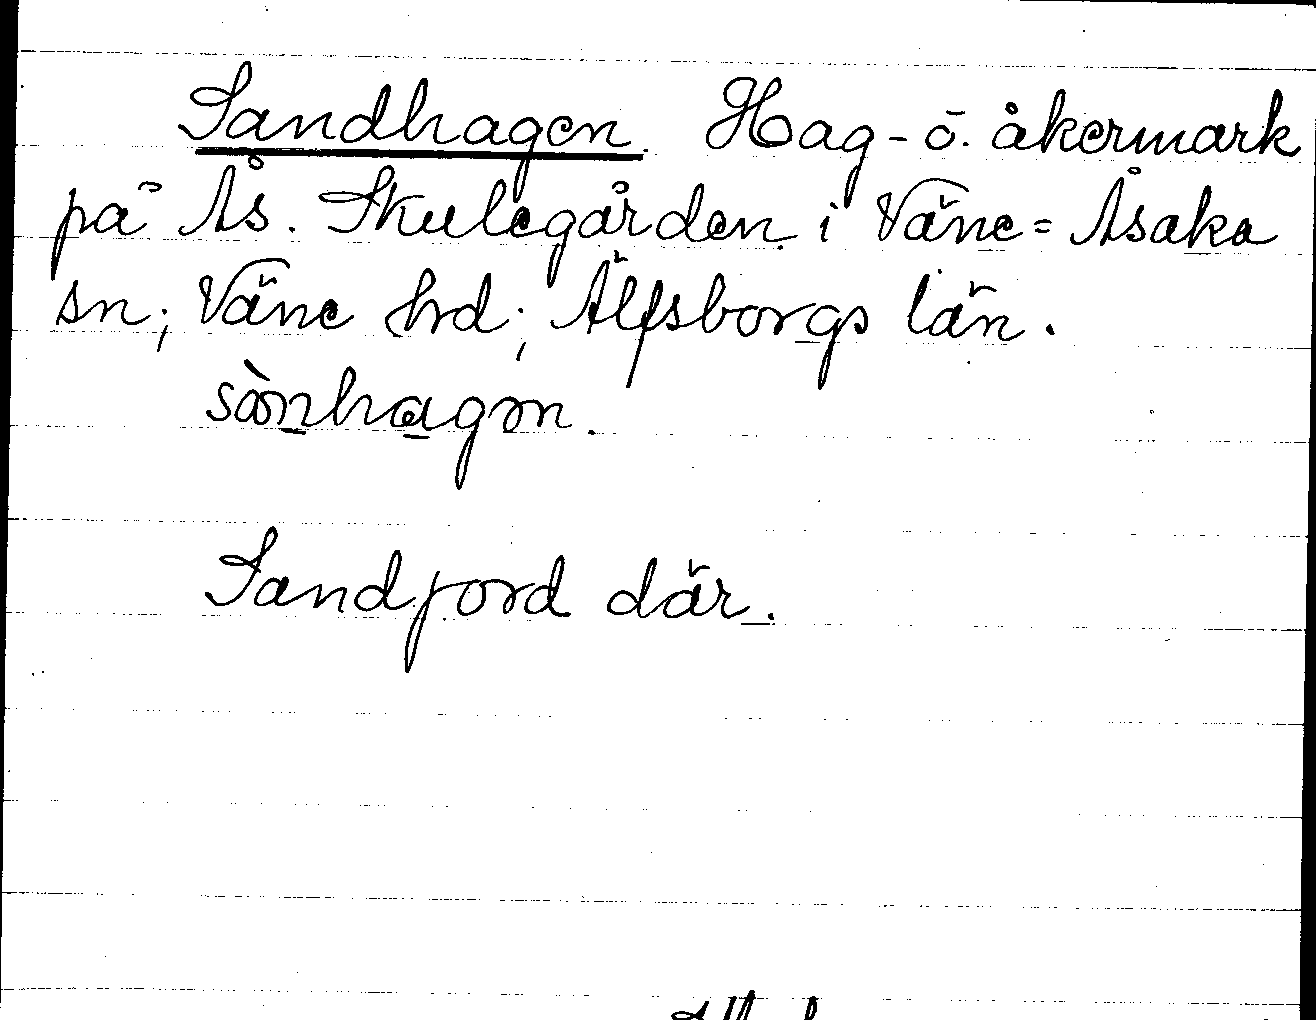 Sandhagen. Hag- o. åkermark
på Ås. Skulegården i Väne=Åsaka
sn; Väne hrd; Älfsborgs län.
sànhagən.
Sandjord där.